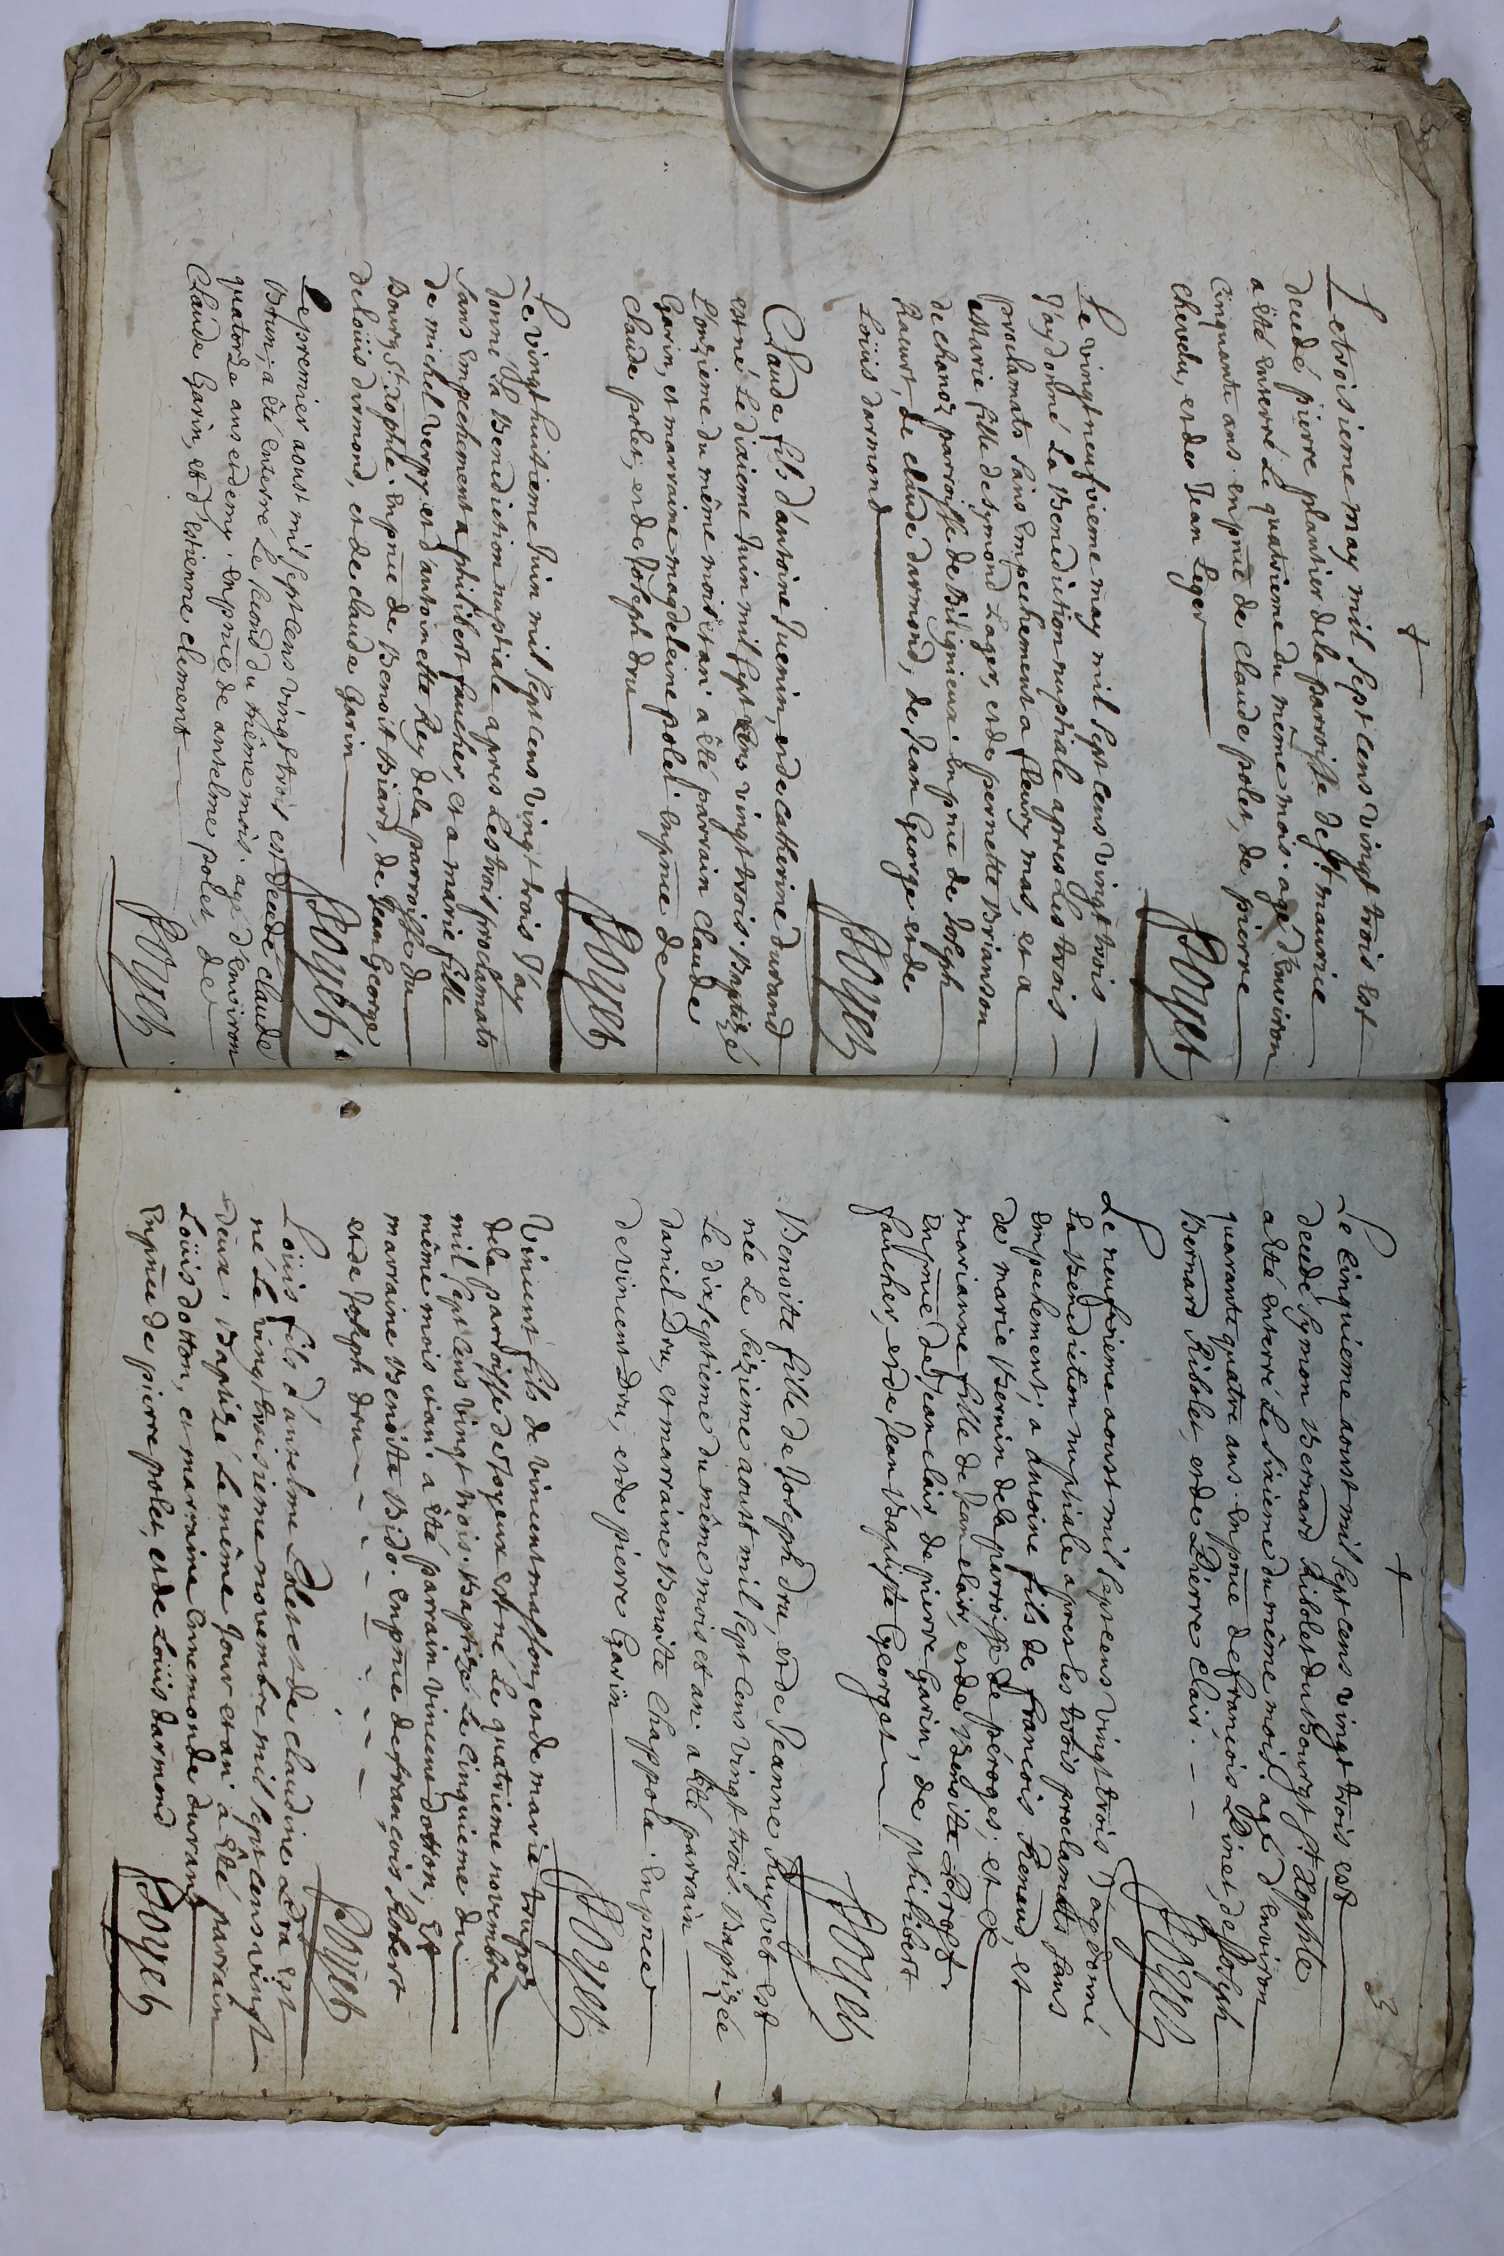 +
Le troisieme may mil sept cens vingt trois est
decedé pierre plantier de la parroisse de St. maurice
a êté enterré Le quatrieme du même mois. agé d'Environ
Cinquante ans. en pñce de Claude polet, de pierre
Chevelu, et de Jean Leger
Poyet
Le vingt neufvieme may mil sept cens vingt trois
J'ay donné La Benediction nuptiale apres Les trois
proclamats sans Empechement a fleury mas, et a
Marie fille de symond Lager, et de pernette Brianson
de chanoz parroisse de Biligneux. en pñce de Joseph
de claude darmond, de Jean George et de
Loüis darmond
Poyet
Claude fils d'antoine Juenin, et de Catherine durand
est né Le dixieme Juin mil sept Cens vingt trois. Baptizé
L'onzieme du même mois et an. a êté parrain Claude
Garin, et marraine magdeleine polet. en pñce de
Claude polet, et de Joseph dru
Poyet
Le vingt huitieme Juin mil sept cens vingt trois J'ay
donné La Benediction nuptiale apres Les trois proclamats
sans empechement a philibert faucher, et a marie fille
de michel verpy et d'antoinette Rey de la parroisse du
Bourg St. Xophle. en pñce de Benoit Biard, de Jean George
de loüis darmond, et de claude Garin
Poyet
Le premier aoust mil sept cens vingt trois est decedé claude
Brun, a êté enterré Le second du même mois. agé d'environ
quatorze ans et demy. en pñce de anselme polet, de
Claude Garin, et d'estienne clement
Poyet
+
3
Le Cinquieme aoust mil sept cens vingt trois est
decedé symon Bernard Ribolet du Bourg St. Xophle
a êté enterré Le sixieme du même mois. agé d'Environ
quarante quatre ans. en pñce de françois Pinet, de Joseph
Bernard Ribolet, et de Pierre Clair.
Poyet
Le neufvieme aoust mil sept cens vingt trois J'ay donné
La Benediction nuptiale apres les trois proclamats sans
empechement, a antoine fils de francois Renaud, et
de marie Bernin de la parroisse de peroges, et a
marianne fille de Jean clair, et de Benoite
en pñce de Jean clair, de pierre Garin, de philibert
faucher, et de Jean Baptiste Georget
Poyet
Benoite fille de Joseph dru, et de Jeanne est
née Le seizieme aoust mil sept cens vingt trois. Baptizée
Le dix septieme du même mois et an. a êté parrain
daniel dru, et marraine Benoite Chappola. en pñce
de vincent dru, et de pierre Garin
Poyet
Vincent fils de vincent masson, et de marie
de la parroisse de Joyeux est né Le quatrieme novembre
mil sept Cens vingt trois. Baptizé Le cinquieme du
même mois et an. a êté parrain vincent dotton, et
marraine Benoite Bido. en pñce de françois Robert
et de Joseph dru
Poyet
Loüis fils d'anselme Polet et de claudine Dra est
né Le vingt troisieme novembre mil sept cens vingt
deux. Baptizé Le même Jour et an. a êté parrain
Loüis dotton, et marraine Ennemonde durand
en pñce de pierre polet, et de Loüis darmond
Poyet